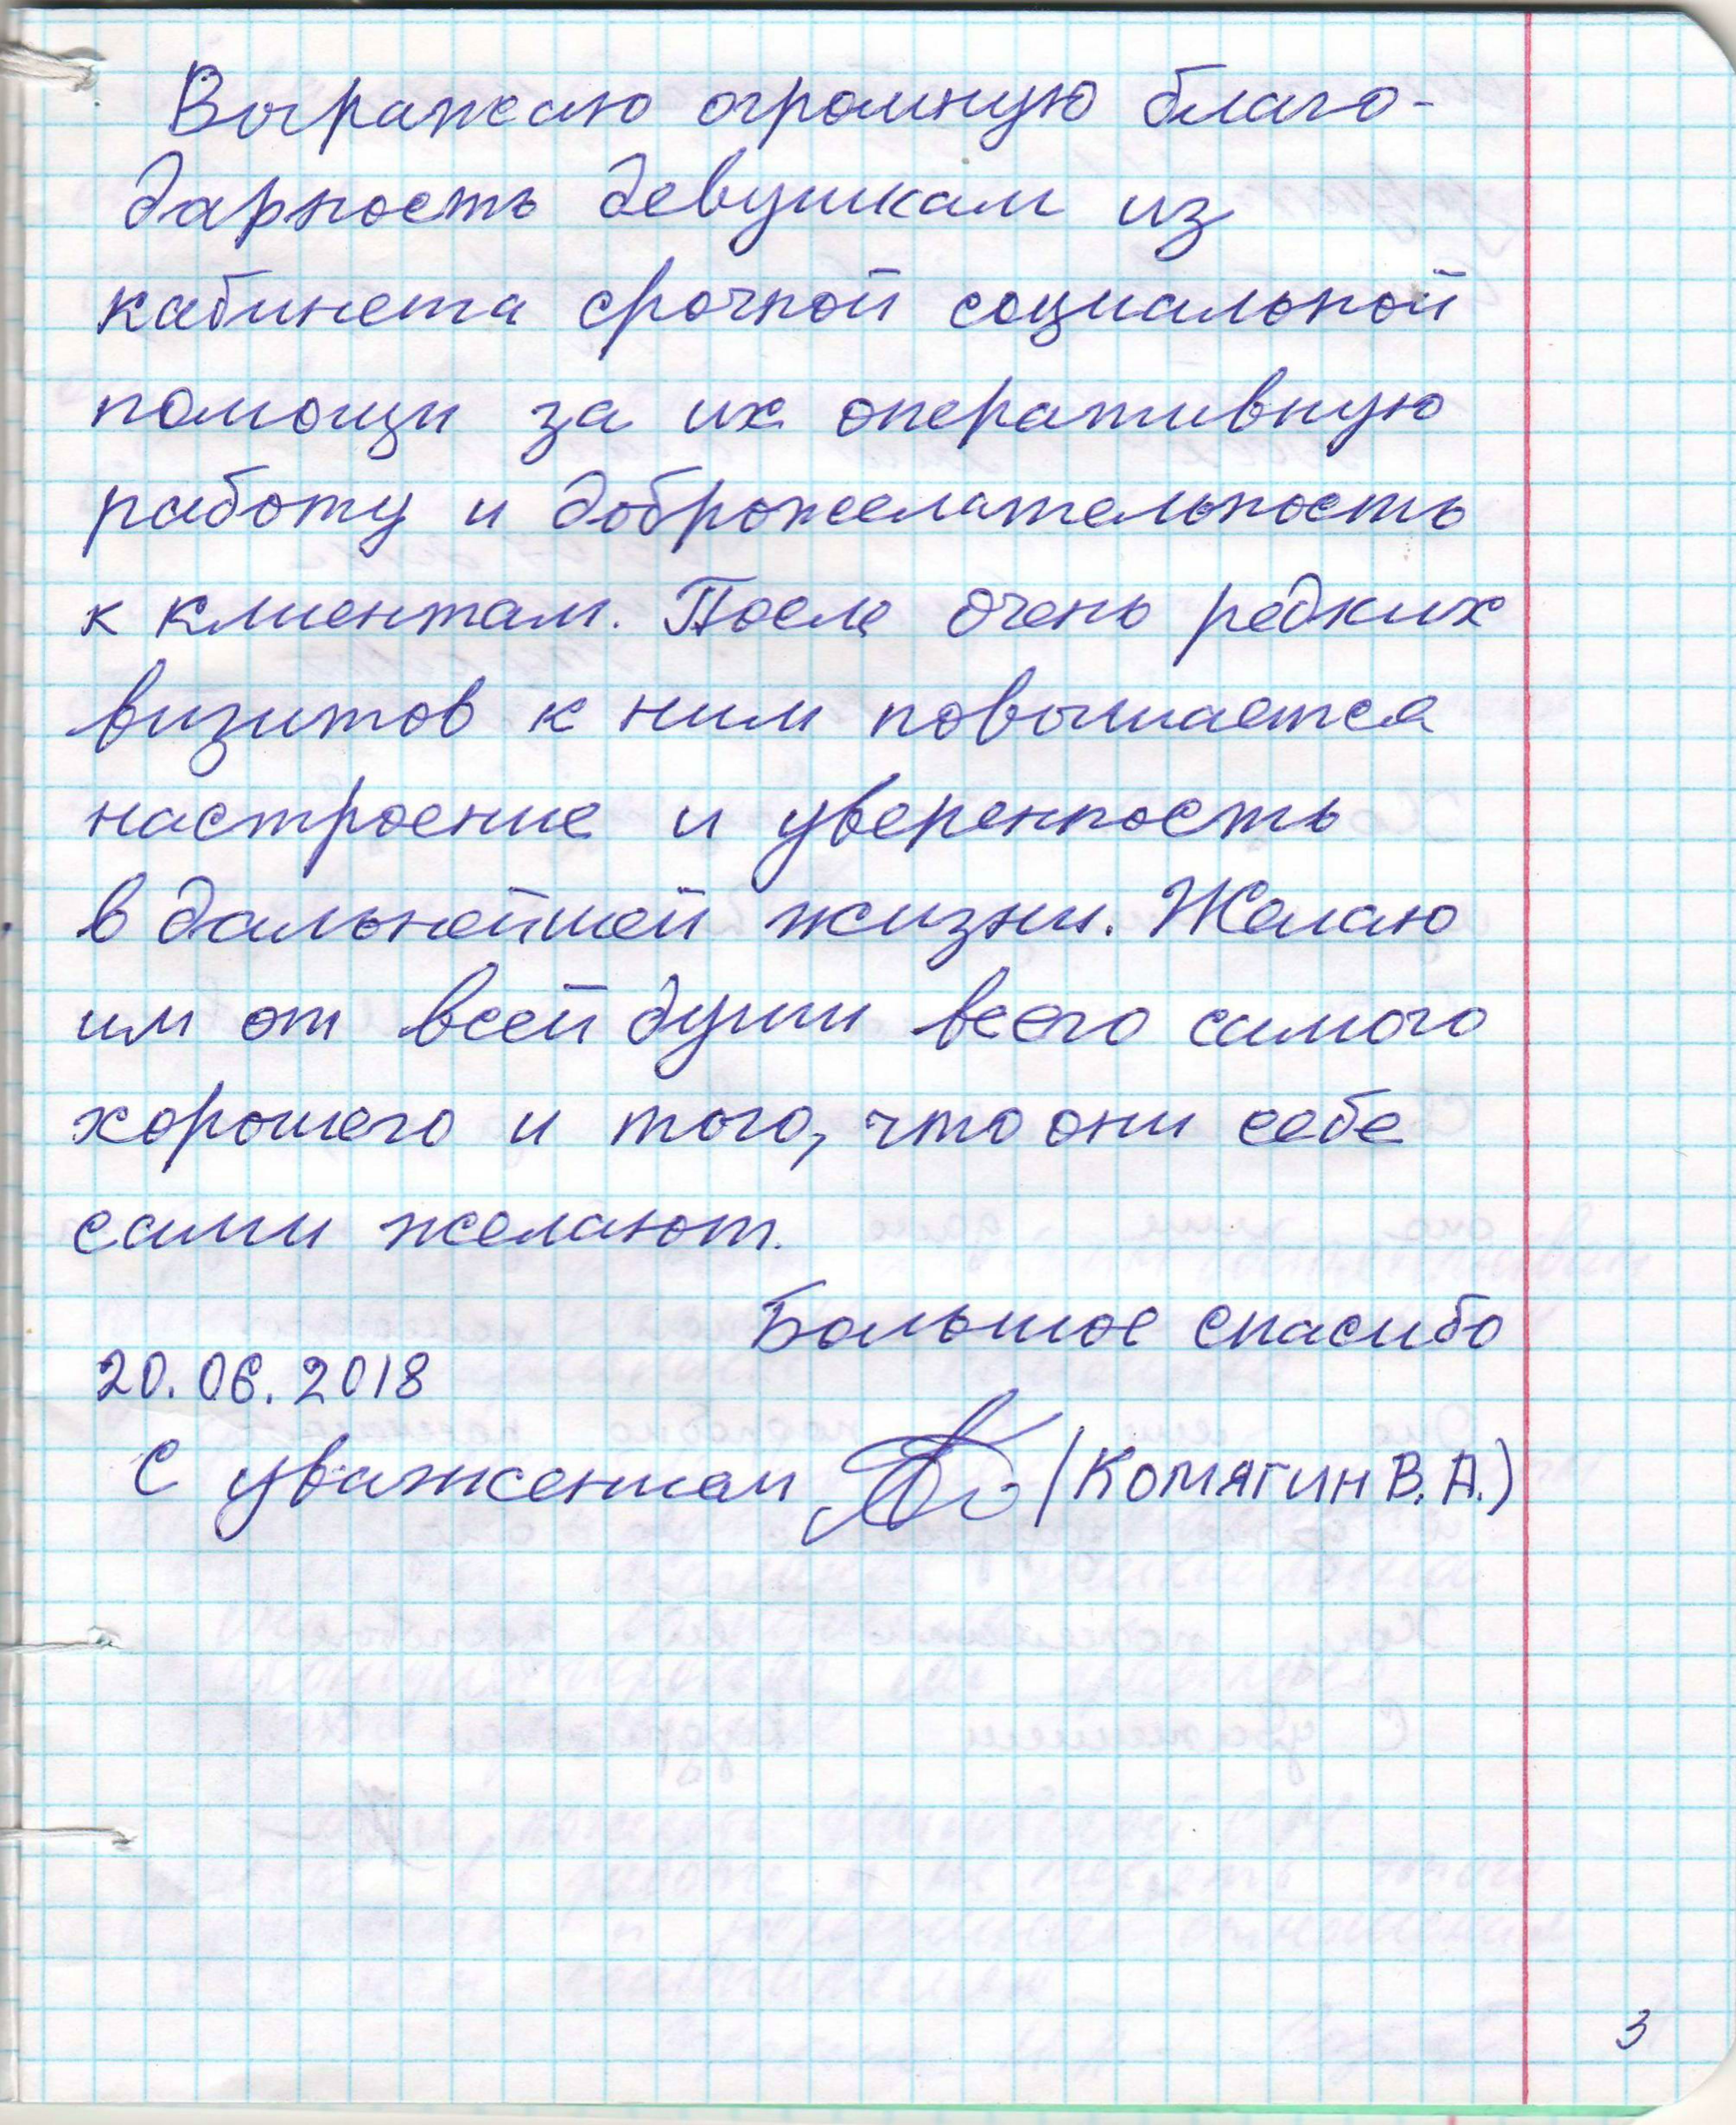 Выражаю огромную благо-
дарность девушкам из
кабинета срочной социальной
помощи за их оперативную
работу и доброжелательность
к клиентам. После очень редких
визитов к ним повышается
настроение и уверенность
в дальнейшей жизни. Желаю
им от всей души всего самого
хорошего и того, что они себе
сами желают.
Большое спасибо
20.06.2018
С уважением (Комягин В.А.)
3